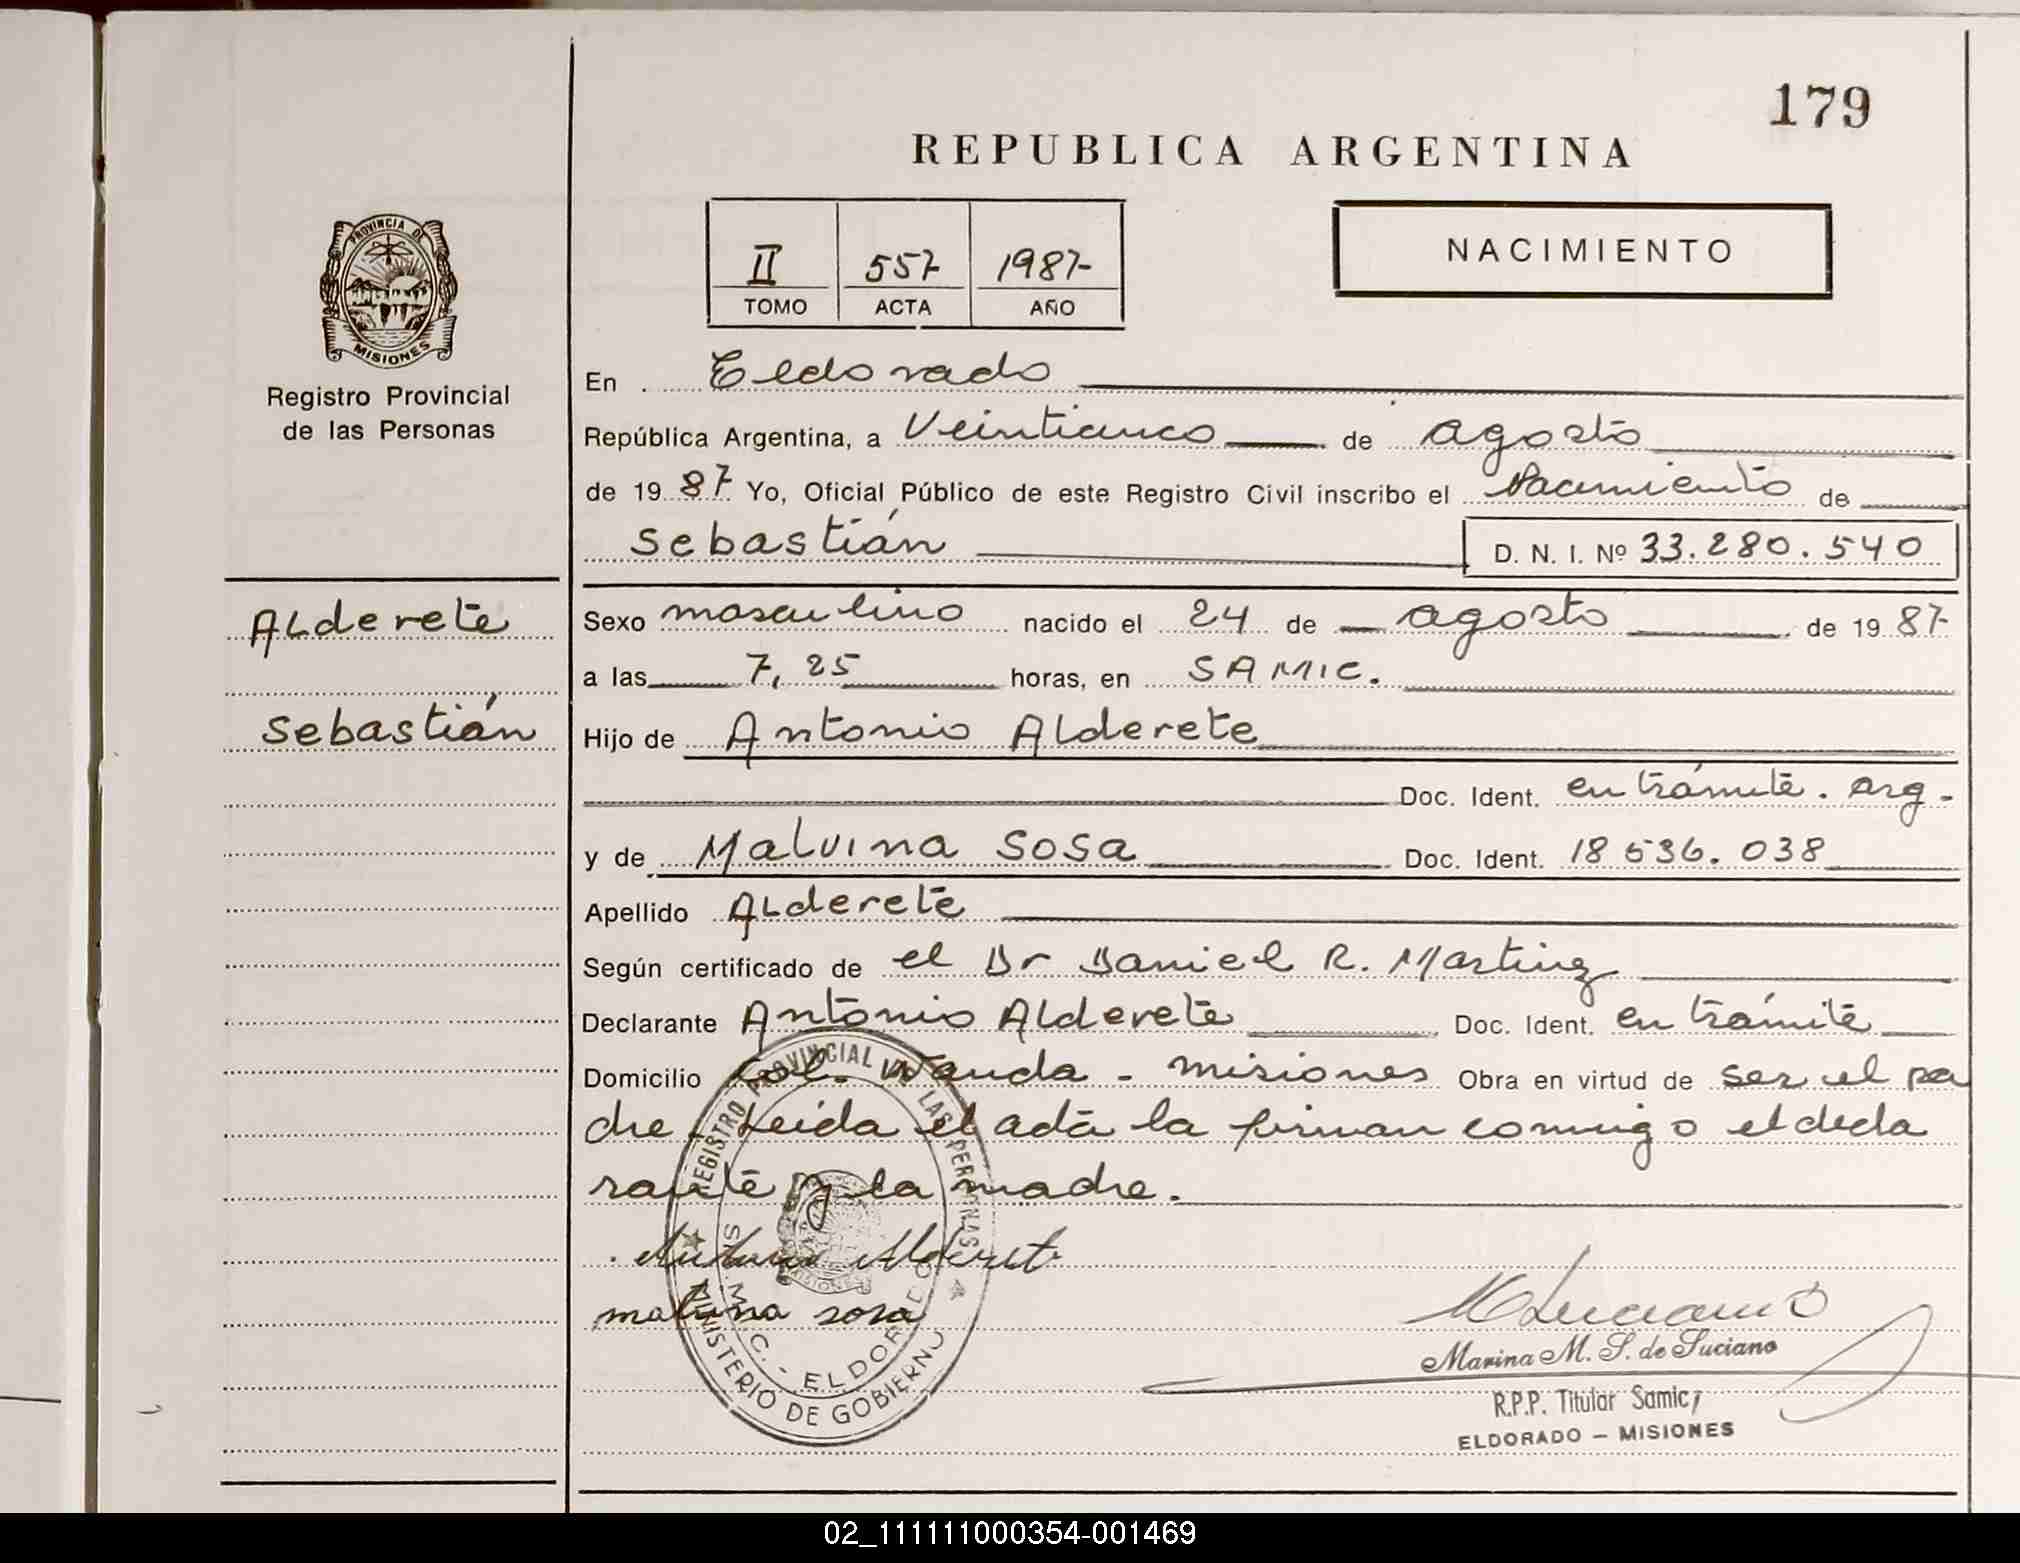 179
REPUBLICA ARGENTINA
II 557 1987
TOMO ACTA AÑO
NACIMIENTO
PROVINCIA DE MISIONES
Registro Provincial
de las Personas
En Eldorado
República Argentina, a Veinticinco de agosto
de 1987 Yo, Oficial Público de este Registro Civil inscribo el Nacimiento de
Sebastián D. N. I. Nº 33.280.540
Alderete
Sebastián
Sexo masculino nacido el 24 de agosto de 1987
a las 7,25 horas, en SAMIC.
Hijo de Antonio Alderete
Doc. Ident. en trámite. Arg-
y de Malvina Sosa Doc. Ident. 18 536.038
Apellido Alderete
Según certificado de el Dr Daniel R. Martinez
Declarante Antonio Alderete Doc. Ident. en trámite
Domicilio Col. Wanda - misiones Obra en virtud de ser el pa
dre. Leida el acta la firman conmigo el decla
rante y la madre.
Antonio Alderete
malvina sosa
REGISTRO PROVINCIAL DE LAS PERSONAS
MINISTERIO DE GOBIERNO
S.A.M.I.C. - ELDORADO
MISIONES
M Luciano
Marina M. S. de Luciano
R.P.P. Titular Samic,
ELDORADO - MISIONES
02_111111000354-001469